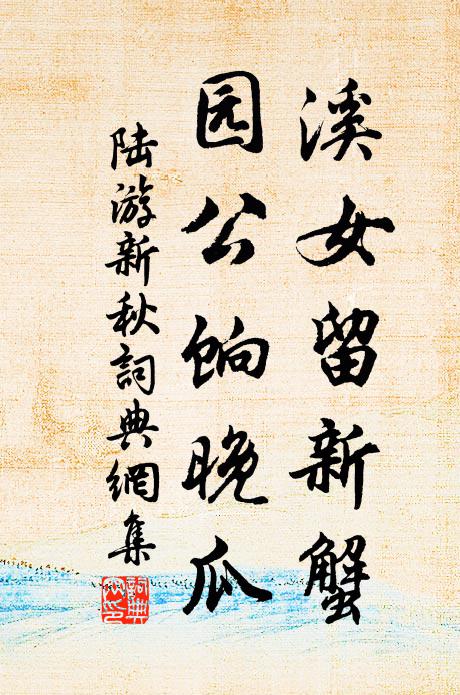 溪女留新蟹
园公饷晚瓜
陆游新秋詞典網集